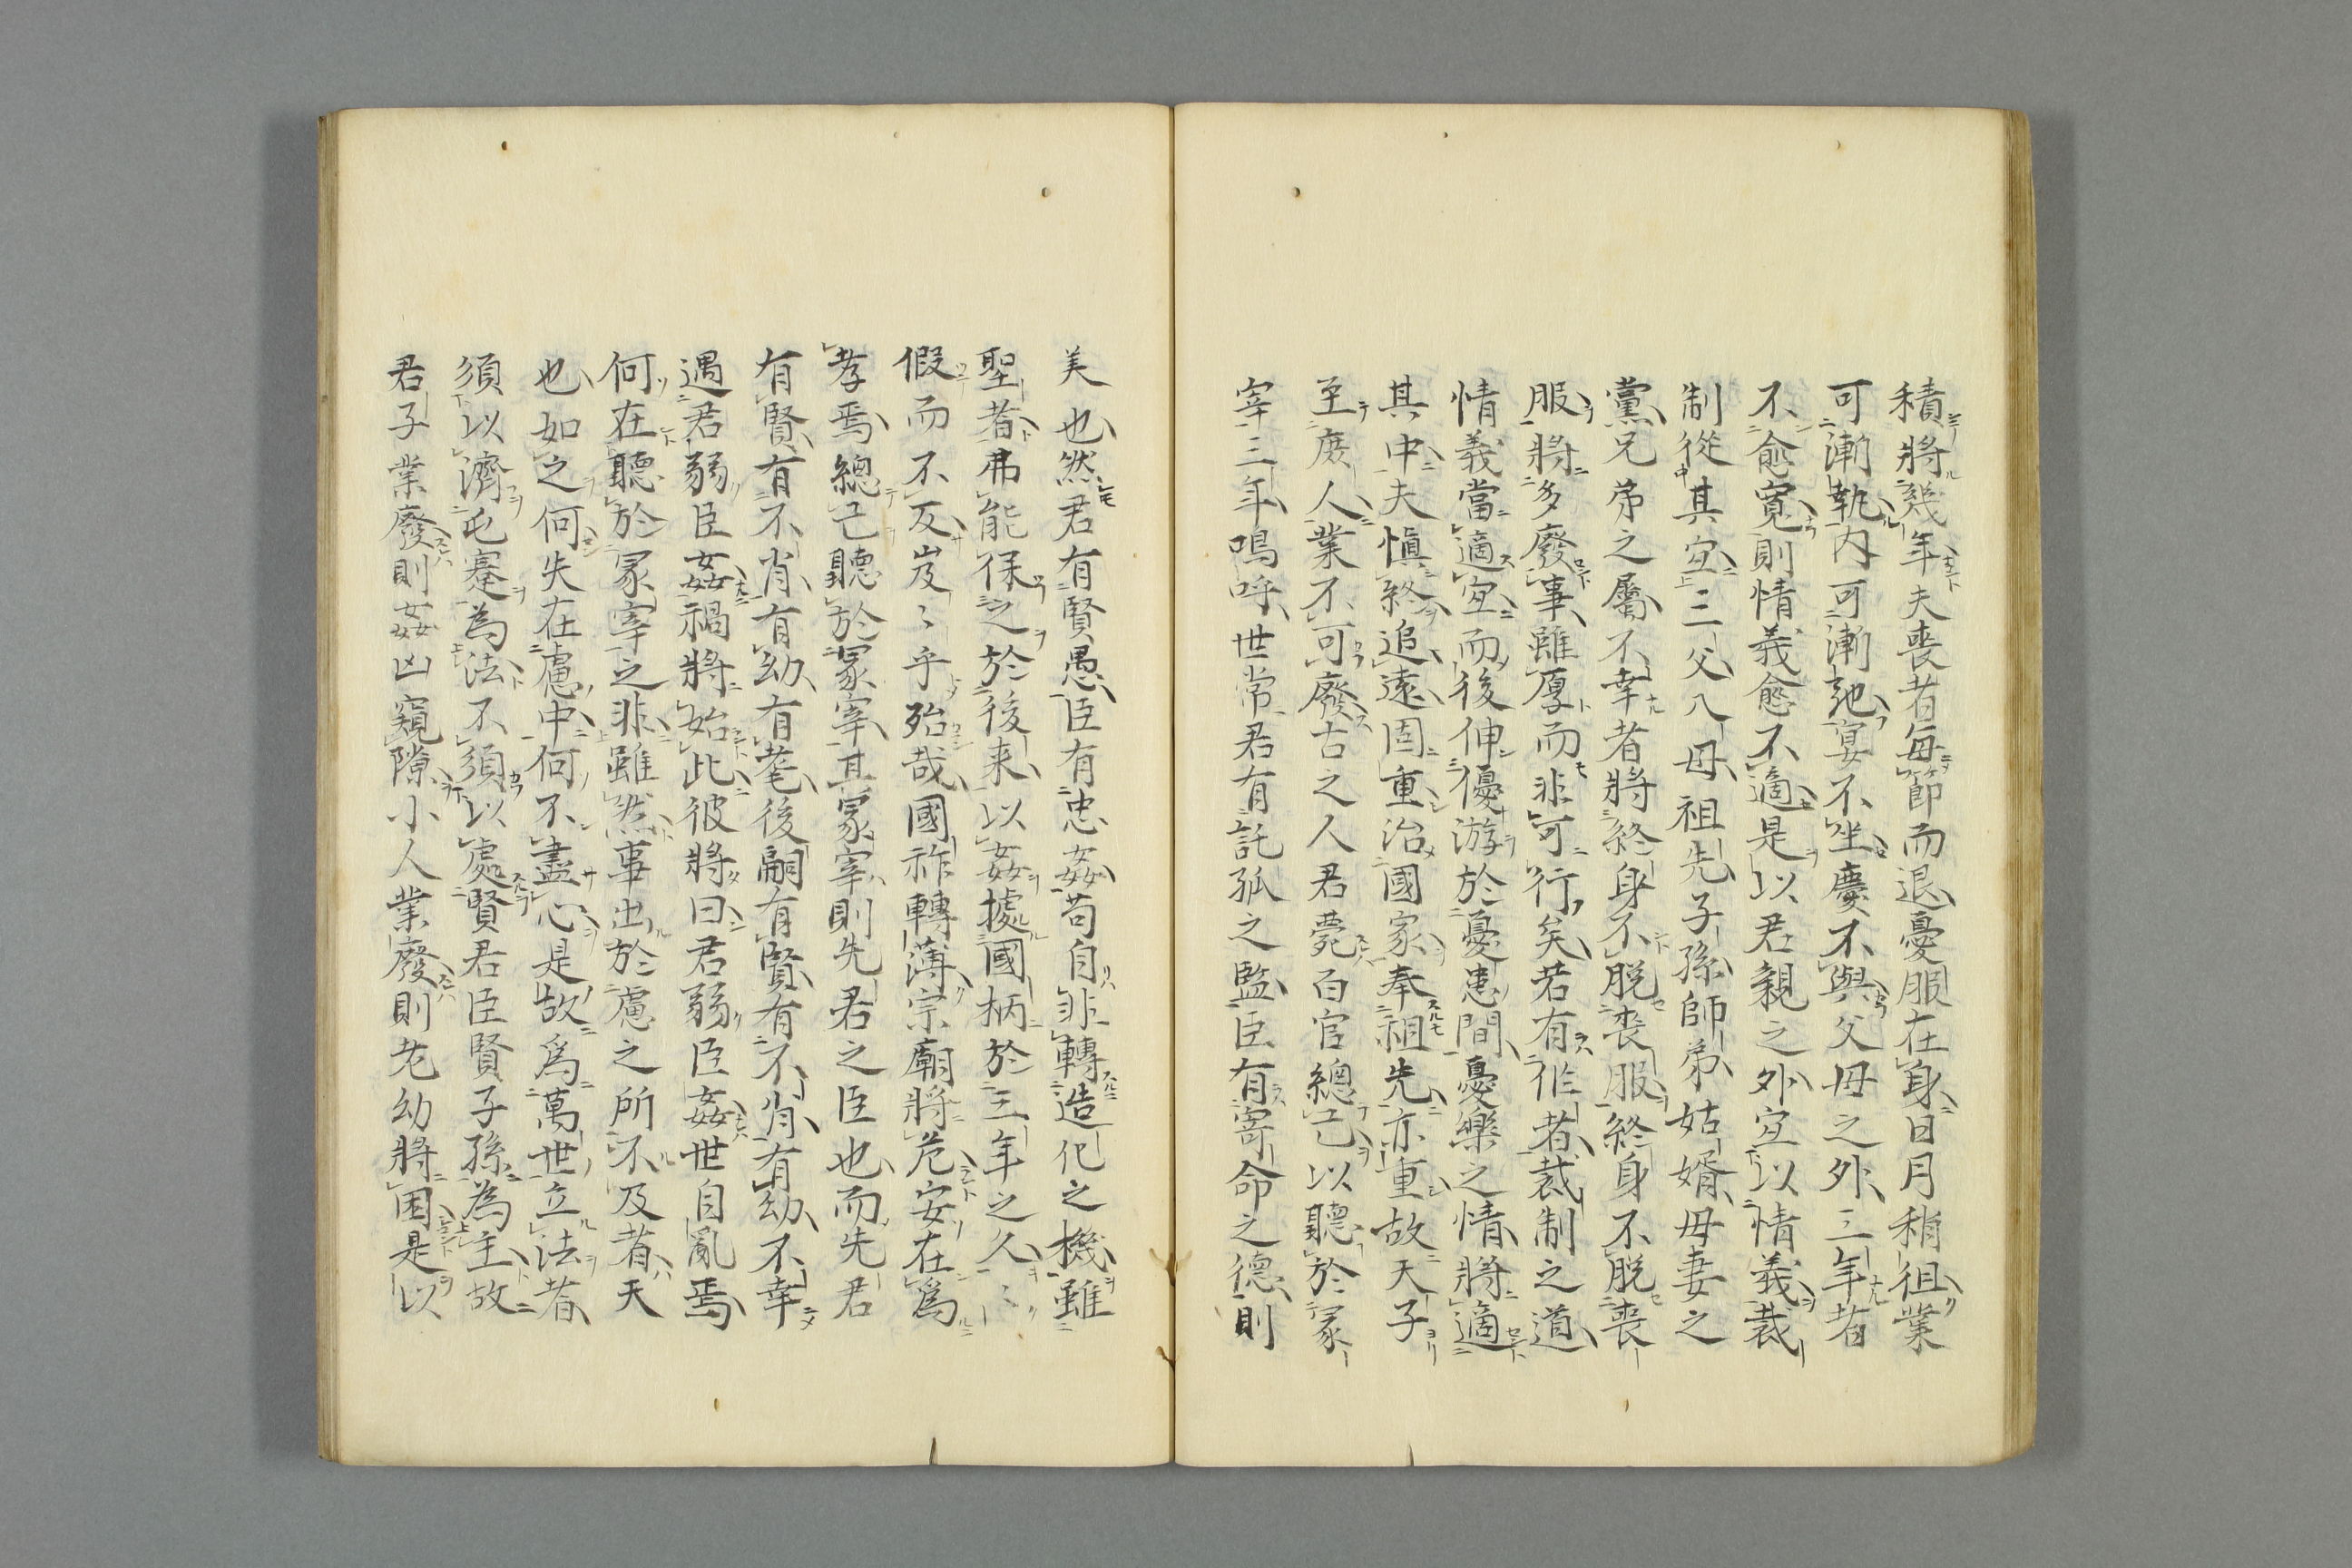 積將幾年夫喪者每節而退憂服在身日月稍徂業
可漸執內可漸弛宴不坐慶不與父母之外三年者
不愈寬則情義愈不適是以君親之外宜以情義裁
制從其宜三父八母祖先子孫師弟姑婿母妻之
黨兄弟之屬不幸者將終身不脱喪服終身不脱喪
服將多廢事雖厚而非可行矣若有作者裁制之道
情義當適宜而後伸優游於憂患間憂樂之情將適
其中夫愼終追遠固重治國家奉祖先亦重故天子
至庶人業不可廢古之人君薨百官總己以聽於冢
宰三年嗚呼世常君有託孤之監臣有寄命之德則
美也然君有賢愚臣有忠姦苟自非轉造化之機雖
聖者弗能保之於後来以姦據國柄於三年之久〻
假而不反岌〻乎殆哉國祚轉薄宗廟將危安在爲
孝焉總己聽於冢宰其冢宰則先君之臣也而先君
有賢有不肖有幼有耄後嗣有賢有不肖有幼不幸
遇君弱臣姦禍將始此彼將曰君弱臣姦世自亂焉
何在聽於冢宰之非雖然事出於慮之所不及者天
也如之何失在慮中何不盡心是故爲萬世立法者
須以濟屯蹇為法不須以處賢君臣賢子孫為主故
君子業廢則姦凶窺隙小人業廢則老幼將困是以